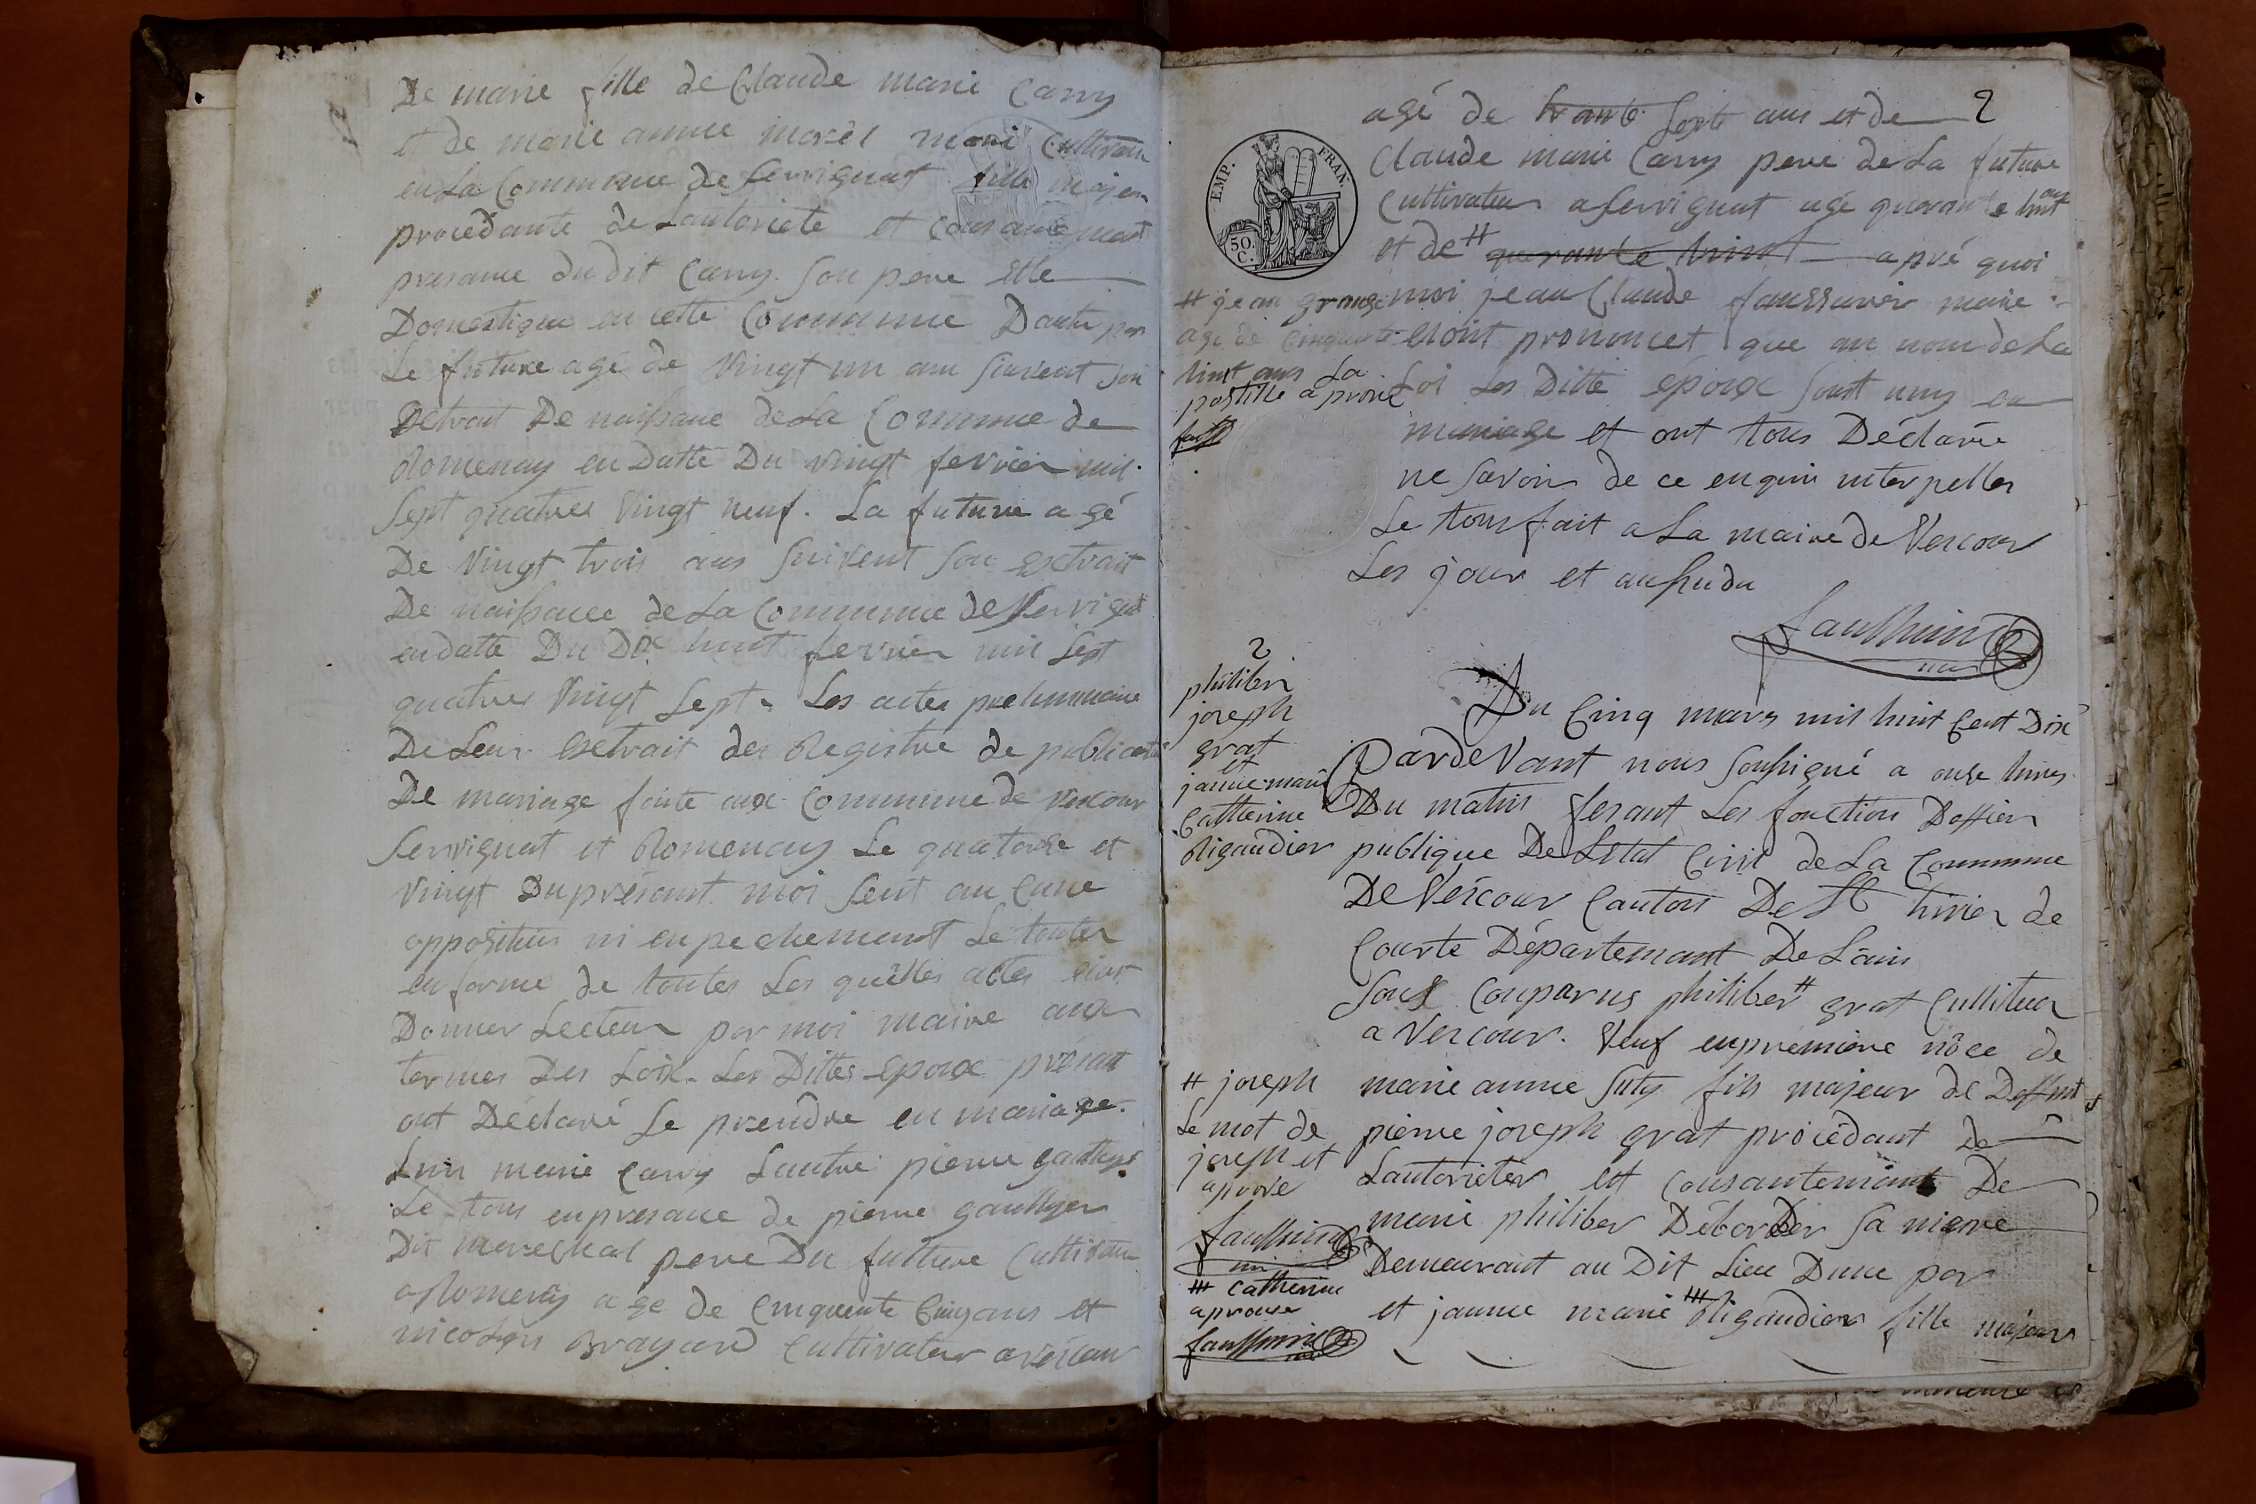 De marie fille de Claude marie Carry
et de marie annue morel marié Cultivateur
en La Commune de servignat fille majeur
procedante de Lautoriete et consantement
presance du dit Carry son pere elle
Domestique en cette Commune Dautre par
Le future agé de vingt un ans suivent son
Extrait De naissance de La Commune de
Romenay en Datte Du vingt fevrier mil
sept quatre vingt neuf. La future agé
De vingt trois ans suivent son extrait
De naissance de La Commune de servignat
en datte Du Dix huit fevrier mil sept
quatres vingt sept. Les actes preliminaire
De Leur extrait des Registre de publication
De mariage faite aux Commune de vescour
Servignat et Romenay Le quatorse et
vingt Du présant moi sent au Cune
opposition ni enpechement Le toutes
en forme de toutes Les quelles actes
Donner Lecteur par moi maire aux
termes Des Loix. Les Dittes epoux présant
ont Déclaré se prendre en mariage.
Lun marie Carry Lautre pierre gauthyer
Le tous en presance de pierre gauthyer
Dit marechal pere Du future Cultivateur
a Romenay age de Cinquente Cinq ans et
nicolas Brayard Cultivateur a vescour
2
agé de trante sept ans et de
Claude marie Carry pere de La future
Cultivateur a servignat agé quarante huit ans
et de # quarante huit apré quoi
moi jean Claude faussurier maire
avont prononcet que au nom de La
Loi Les Ditte epoux sont uny en
mariage et ont tous Déclarée
ne savoir de ce enquis interpelles
Le tous fait a La mairie de Vescour
Les jour et an susdu
EMP. FRAN.
50. C.
# jean grange
age de cinquante
huit ans La
postille a prouvé
2
philiber
joseph
grat
et
janne marie
Catherine
Rigaudier
Du Cinq mars mil huit Cent Dix
Pardevant nous soussigné a onse hures
Du matin fesant Les fonction Doffier
publique De Letat Civil de La Commune
De Vescour Canton De St trivier de
Courte Département De Lain
sous Conparus philiber # grat Cultiteur
a Vescour. Veuf en premiere nôce de
marie annue suty fils majeur de Deffunt
pierre joseph grat procédant de
Lautorieter et consantement De
marie philiber Déborder sa mere
Demeurant au Dit Lieu Dune par
et jannue marie ## Rigaudier fille majeur
# joseph
Le mot de
joseph et
aprouve
## Catherine
aprouver